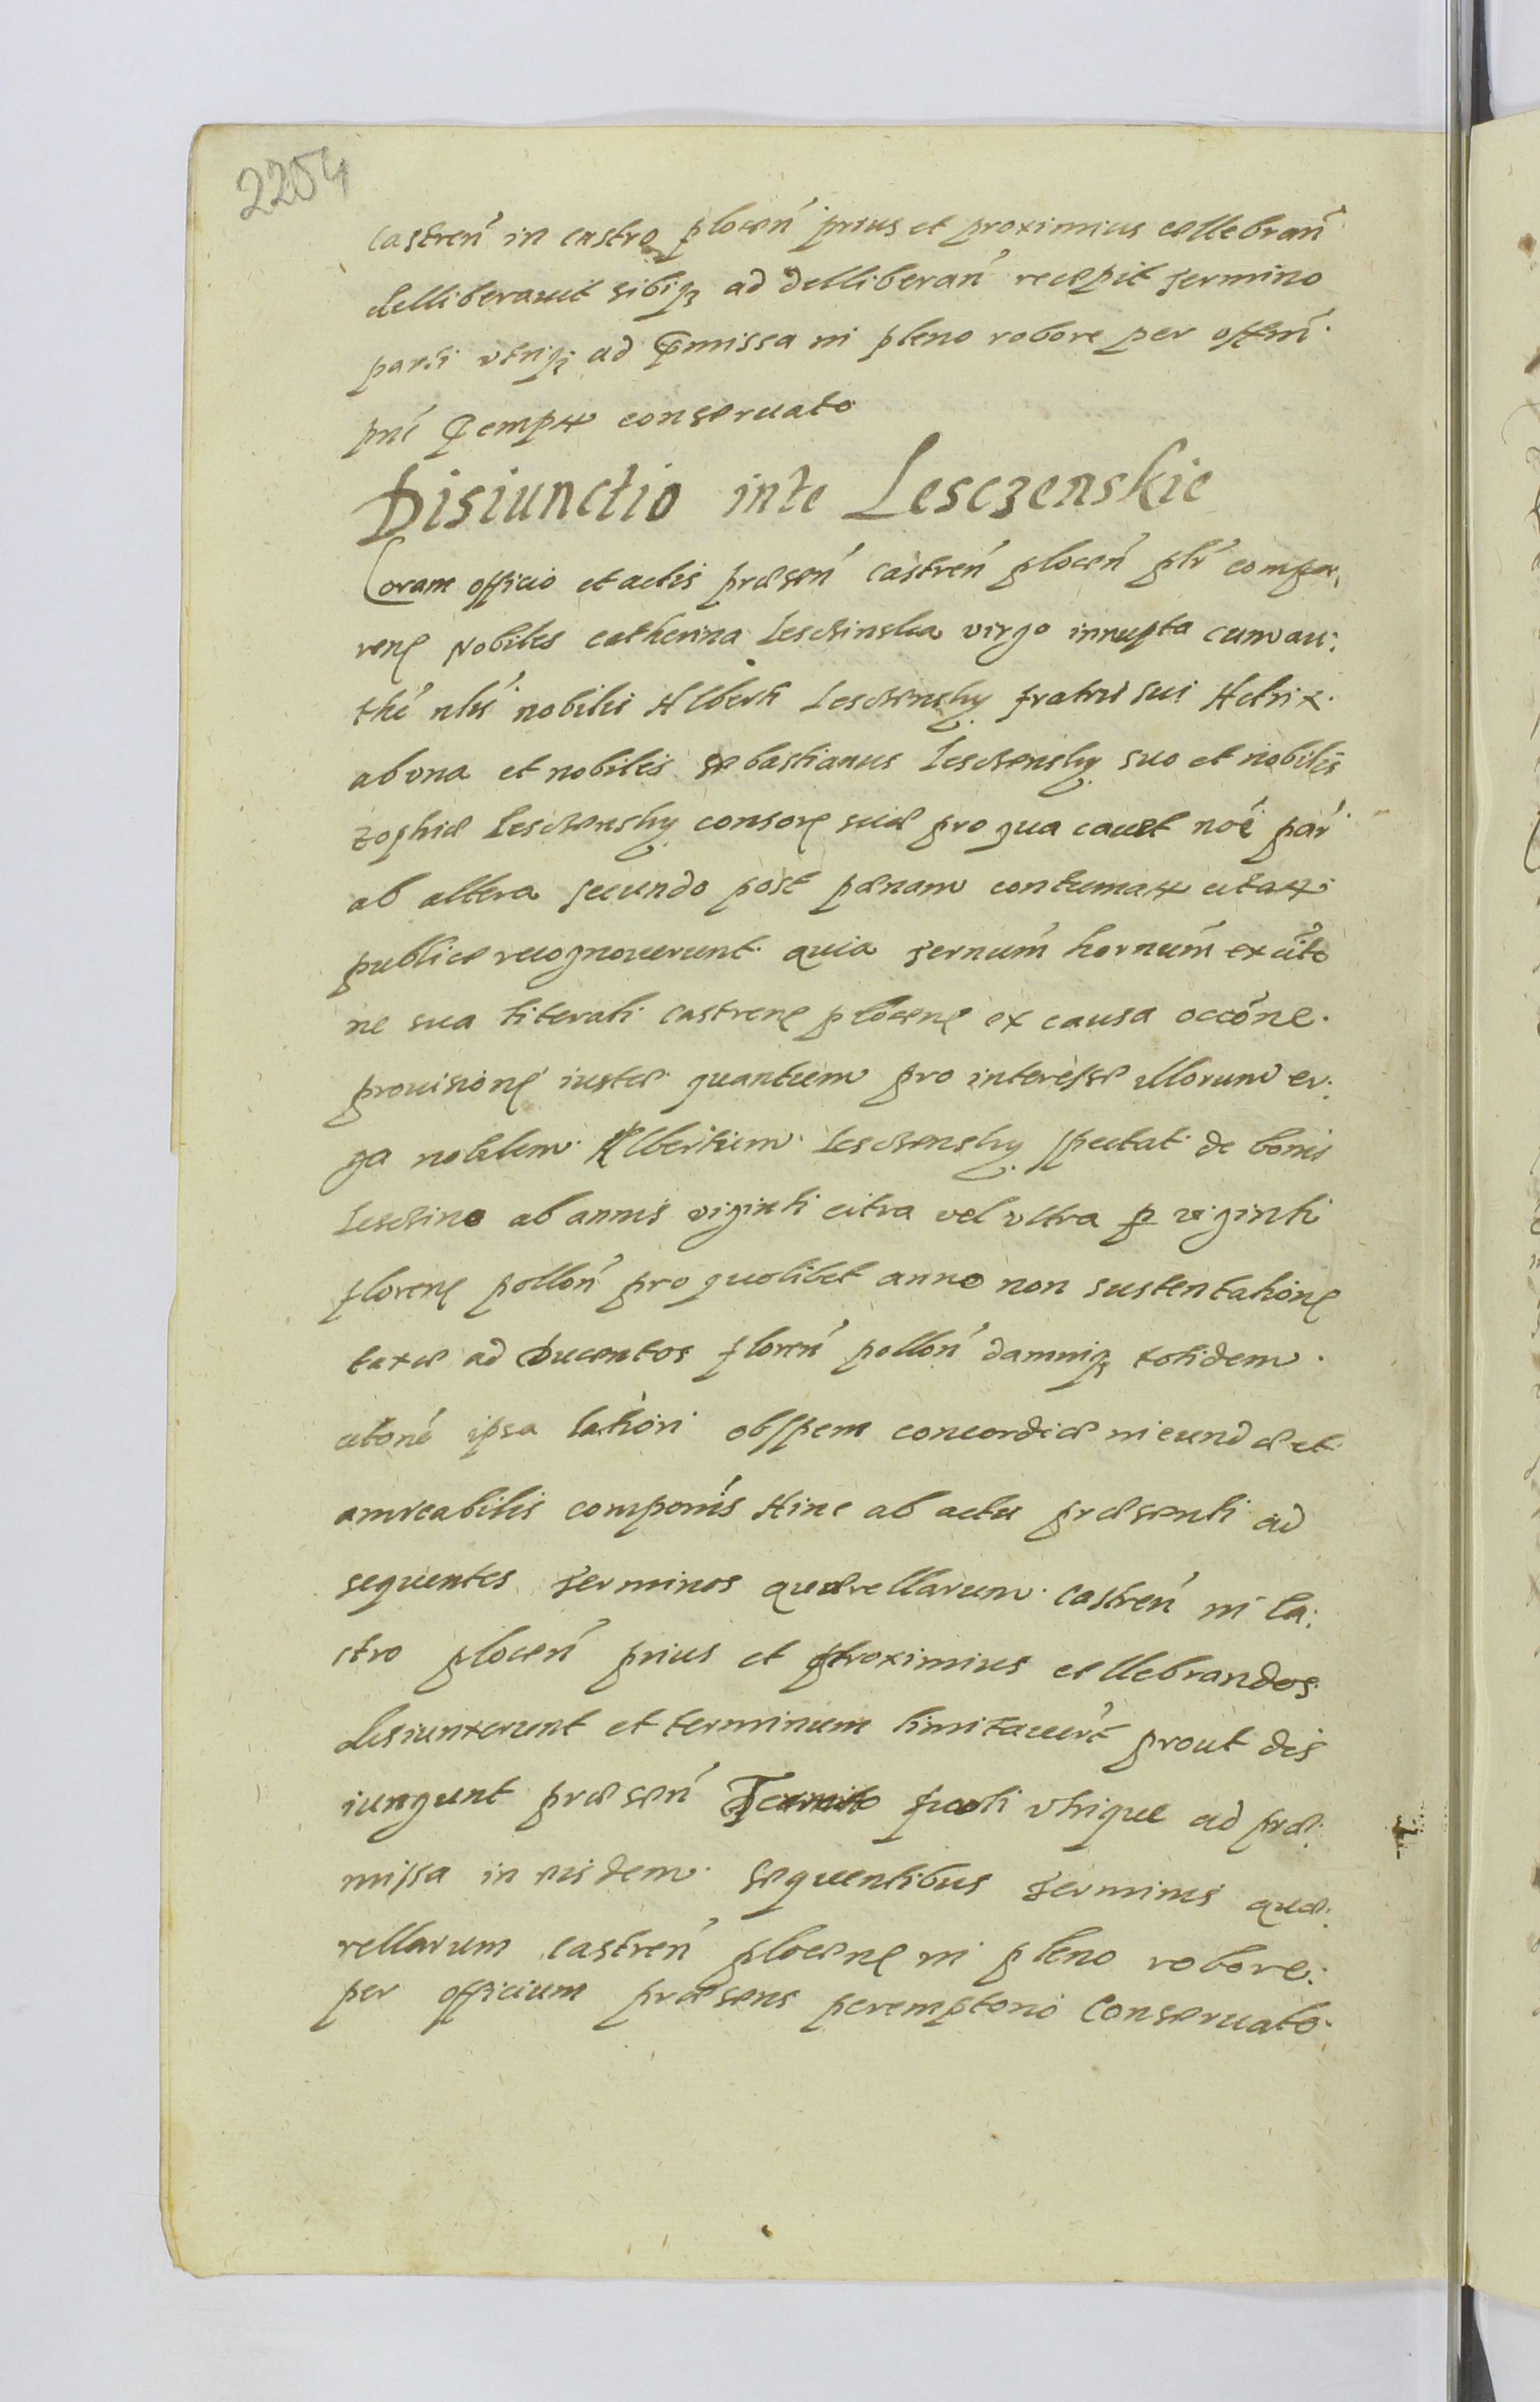 2254
castren̄ in castro plocen̄ prius et proximius cellebran̄
delliberauit sibiq3 ad delliberan̄ recepit termino
parti utriq3 ad p̄missa in pleno robore per offm̄
pn̄s conseruato
Disiunctio inte Lesczenskie
Coram officio et actis præsen̄ castren̄ plocen̄ compa,
ren̄ Nobiles catherina Lesczinska virgo innupta cum au:
nobilis Alberti Lesczensky fratris sui
ab una et nobilis sebastianus Lesczensky suo et nobilis
zophiæ Lesczensky consor̄ suæ pro qua cauet no̅e par̄
ab altera secundo post pænam contumat
publice recognouerunt quia ternum̄ hornum̄ ex cit̄o
ne sua literali castren̄ plocen̄ ex causa occo̅ne
prouision̄ iustæ quantum pro interesse illorum er:
ga nobilem Albertum Lesczensky spectat de bonis
Lesczino ab annis viginti citra vel ultra p viginti
floren̄ pollon̄ pro quolibet anno non sustentation̄
taxæ ad Ducentos floren̄ pollon̄ damniq3 totidem
cito̅ne ipsa latiori ob spem concordiæ ineundæ et
amicabilis compon̄is Hinc ab actu præsenti ad
sequentes terminos quærellarum castren̄ in Ca:
stro plocen̄ prius et proximius cellebrandos
disiunxerunt et terminum limitauer̄t prout dis
iungunt præsen̄ Termino parti utrique ad præ:
missa in eisdem sequentibus terminis quæ:
rellarum castren̄ plocen̄ in pleno robore:
per officium præsens peremptorio conseruato